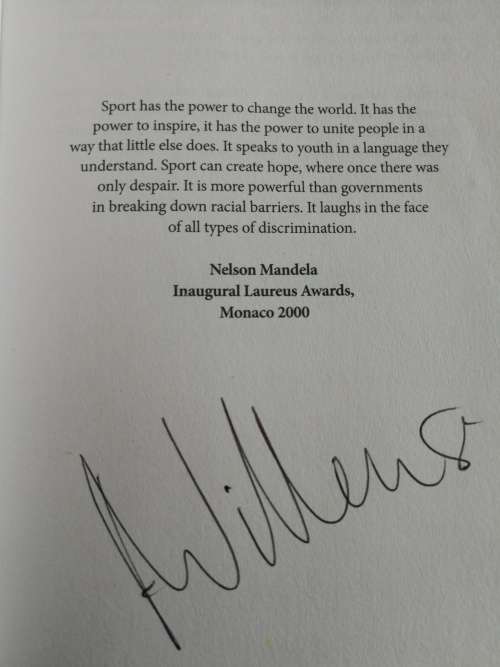 Sport has the power to change the world. It has the
power to inspire, it has the power to unite people in a
way that little else does. It speaks to youth in a language they
understand. Sport can create hope, where once there was
only despair. It is more powerful than governments
in breaking down racial barriers. It laughs in the face
of all types of discrimination.
Nelson Mandela
Inaugural Laureus Awards,
Monaco 2000